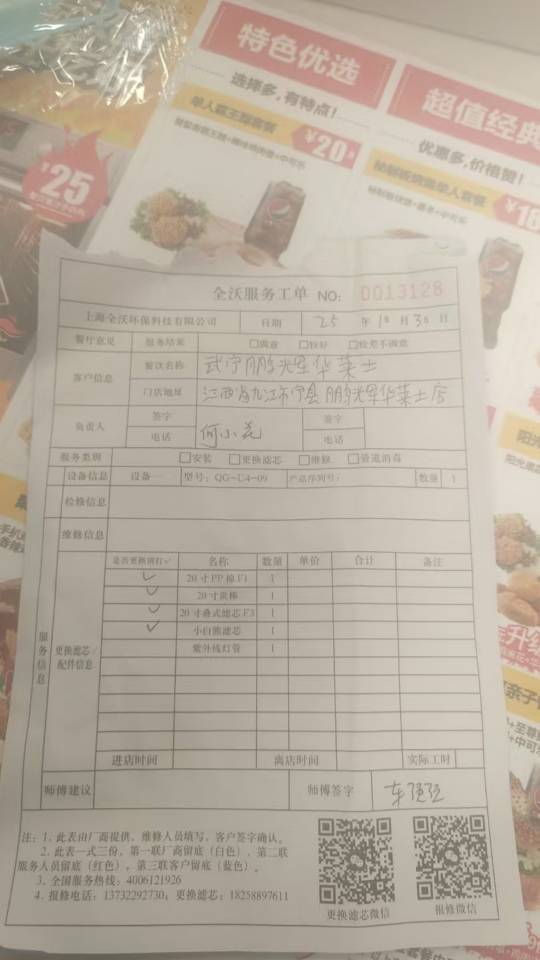 特色优选
选择多,有特点!
单人霸王餐套餐
¥20
超值经典
优惠多,价格赞!
¥25
全沃服务工单 NO: 0013128
上海全沃环保科技有限公司 日期 25 年 10 月 30 日
餐厅意见 服务结果 □满意 □较好 □较差不满意
客户信息 餐饮名称 武宁鹏光军华莱士
门店地址 江西省九江市宁县鹏光军华莱士店
负责人 签字 何小花 签字
电话 电话
服务类别 □安装 □更换滤芯 □维修 □管道消毒
设备信息 设备一 型号: QG-U4-09 产品序列号: 数量 1
检修信息
维修信息
服务信息 更换滤芯/配件信息 是否更换请打✓ 名称 数量 单价 合计 备注
✓ 20寸PP棉F1 1
✓ 20寸炭棒 1
✓ 20寸叠式滤芯F3 1
✓ 小白熊滤芯 1
紫外线灯管 1
进店时间 离店时间 实际工时
师傅建议 师傅签字 车强强
注: 1、此表由厂商提供、维修人员填写、客户签字确认。
2、此表一式三份, 第一联厂商留底 (白色), 第二联
服务人员留底 (红色), 第三联客户留底 (蓝色)。
3、全国服务热线: 4006121926
4、报修电话: 13732292730; 更换滤芯: 18258897611
更换滤芯微信 报修微信